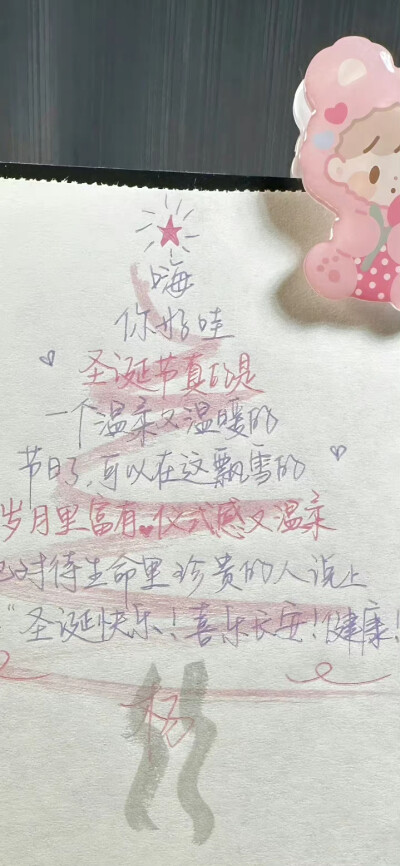 嗨
你好哇
圣诞节真的是
一个温柔又温暖的
节日了,可以在这飘雪的
岁月里富有仪式感又温柔
对待生命里珍贵的人说上
“圣诞快乐!喜乐长安!健康!
杨